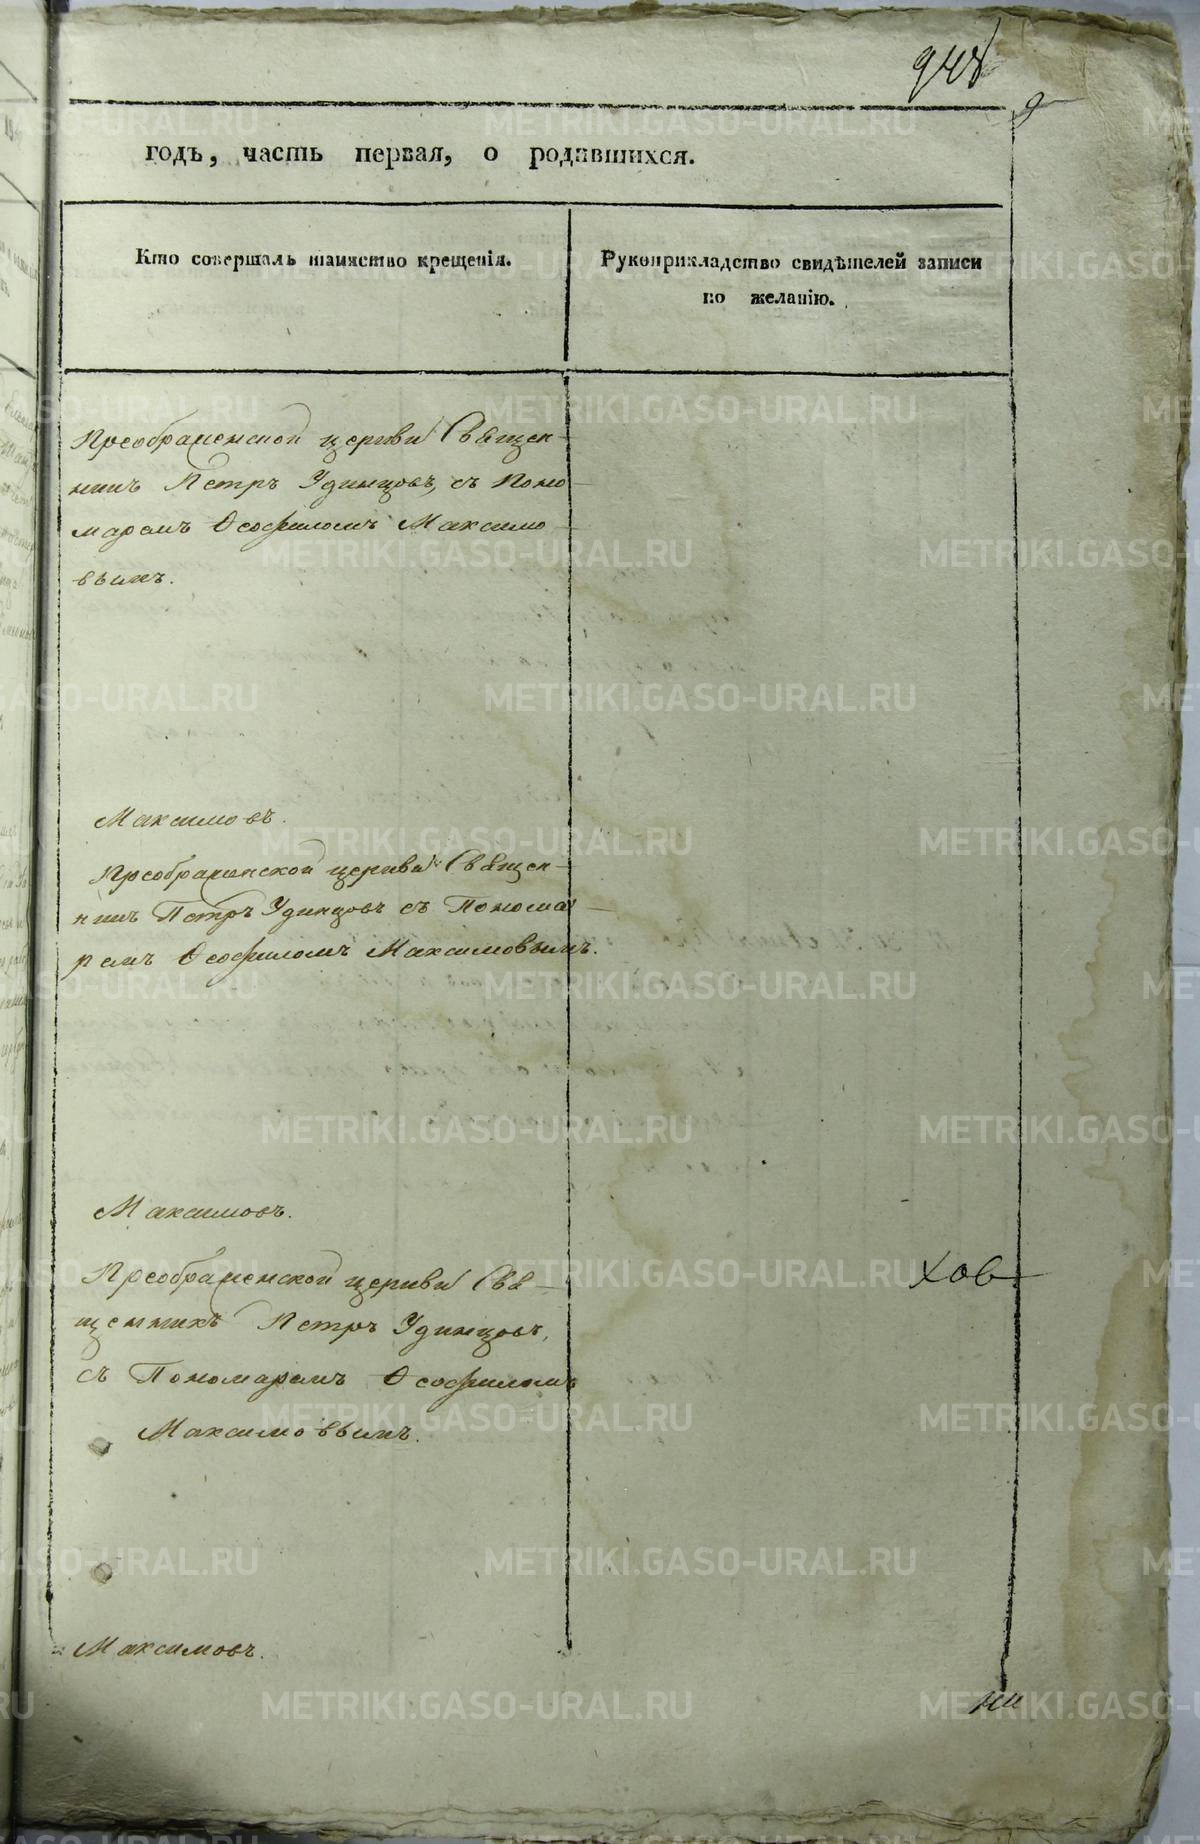 948
годъ, часть первая, о родившихся.
Кто совершалъ таинство крещенія.
Рукоприкладство свидѣтелей записи
по желанію.
Преображенской церкви Священ-
никъ Петръ Удинцовъ, съ Поно-
маремъ Ѳеофиломъ Максимо-
вымъ.
Максимовъ.
Преображенской церкви Священ-
никъ Петръ Удинцовъ съ Понома-
ремъ Ѳеофиломъ Максимовымъ.
Максимовъ.
Преображенской церкви Свя-
щенникъ Петръ Удинцовъ,
съ Пономаремъ Ѳеофиломъ
Максимовымъ.
хов
Максимовъ.
ни
METRIKI.GASO-URAL.RU